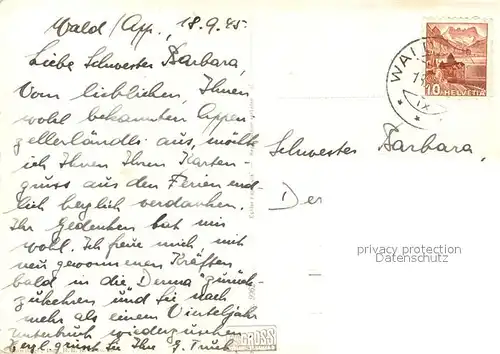 Wald/App., 18.9.45.
Liebe Schwester Barbara,
Vom lieblichen, Ihnen
wohl bekannten Appen-
zellerländli aus, möchte
ich Ihnen Ihren Karten-
gruss aus den Ferien end-
lich herzlich verdanken.
Ihr Gedenken tut mir
wohl. Ich freue mich, mit
neu gewonnenen Kräften
bald in die "Derma" zurück-
zukehren und Sie nach
mehr als einem Vierteljahr
Unterbruch wiederzusehen.
Herzl. grüsst Sie Ihr
WALD
IX
10 HELVETIA
Schwester Barbara,
Der
privacy protection
Datenschutz
GROSS